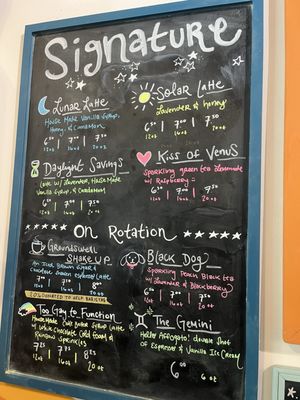 Signature
Lunar Latte
House Made Vanilla Syrup,
Honey & Cinnamon
6 50 | 7 00 | 7 50
12oz 16oz 20oz
Solar Latte
Lavender & honey
6 50 | 7 00 | 7 50
12oz 16oz 20oz
Daylight Savings
Latte w/ Lavender, House Made
Vanilla Syrup, & Cardamom
6 50 | 7 00 | 7 50
12oz 16oz 20oz
Kiss of Venus
Sparkling green tea lemonade
w/ Raspberry
6 50 | 7 00 | 7 50
12oz 16oz 20oz
On Rotation
Groundswell
Shake Up
An Iced Brown Sugar &
Chocolate shaken espresso latte
7 00 | 7 50 | 8 00
12oz 16oz 20oz
20% Donated to Help
Black Dog
Sparkling Peach Black tea
w/ Lavender & Blackberry
6 00 | 7 00 | 7 50
12oz 16oz 20oz
Too Gay to Function
House Made Syrup Latte
w/ White Chocolate Cold foam &
Rainbow Sprinkles
7 25 | 7 75 | 8 25
12oz 16oz 20oz
The Gemini
Affogato: double shot
of Espresso & Vanilla Ice Cream
6 00 6oz